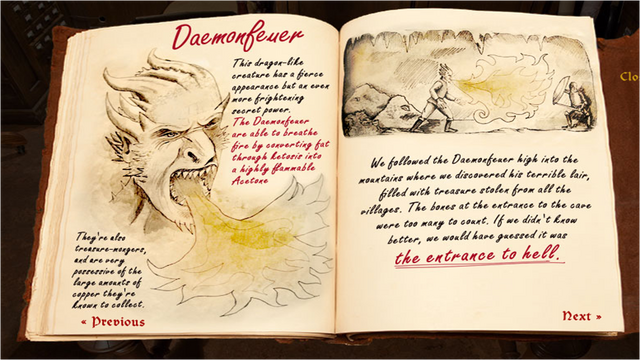 Daemonfeuer
This dragon-like
creature has a fierce
appearance but an even
more frightening
secret power.
The Daemonfeuer
are able to breathe
fire by converting fat
through ketosis into
a highly flammable
Acetone
They're also
treasure-mongers,
and are very
possessive of the
large amounts of
copper they're
known to collect.
« Previous
Clo
We followed the Daemonfeuer high into the
mountains where we discovered his terrible lair,
filled with treasure stolen from all the
villages. The bones at the entrance to the cave
were too many to count. If we didn't know
better, we would have guessed it was
the entrance to hell.
Next »